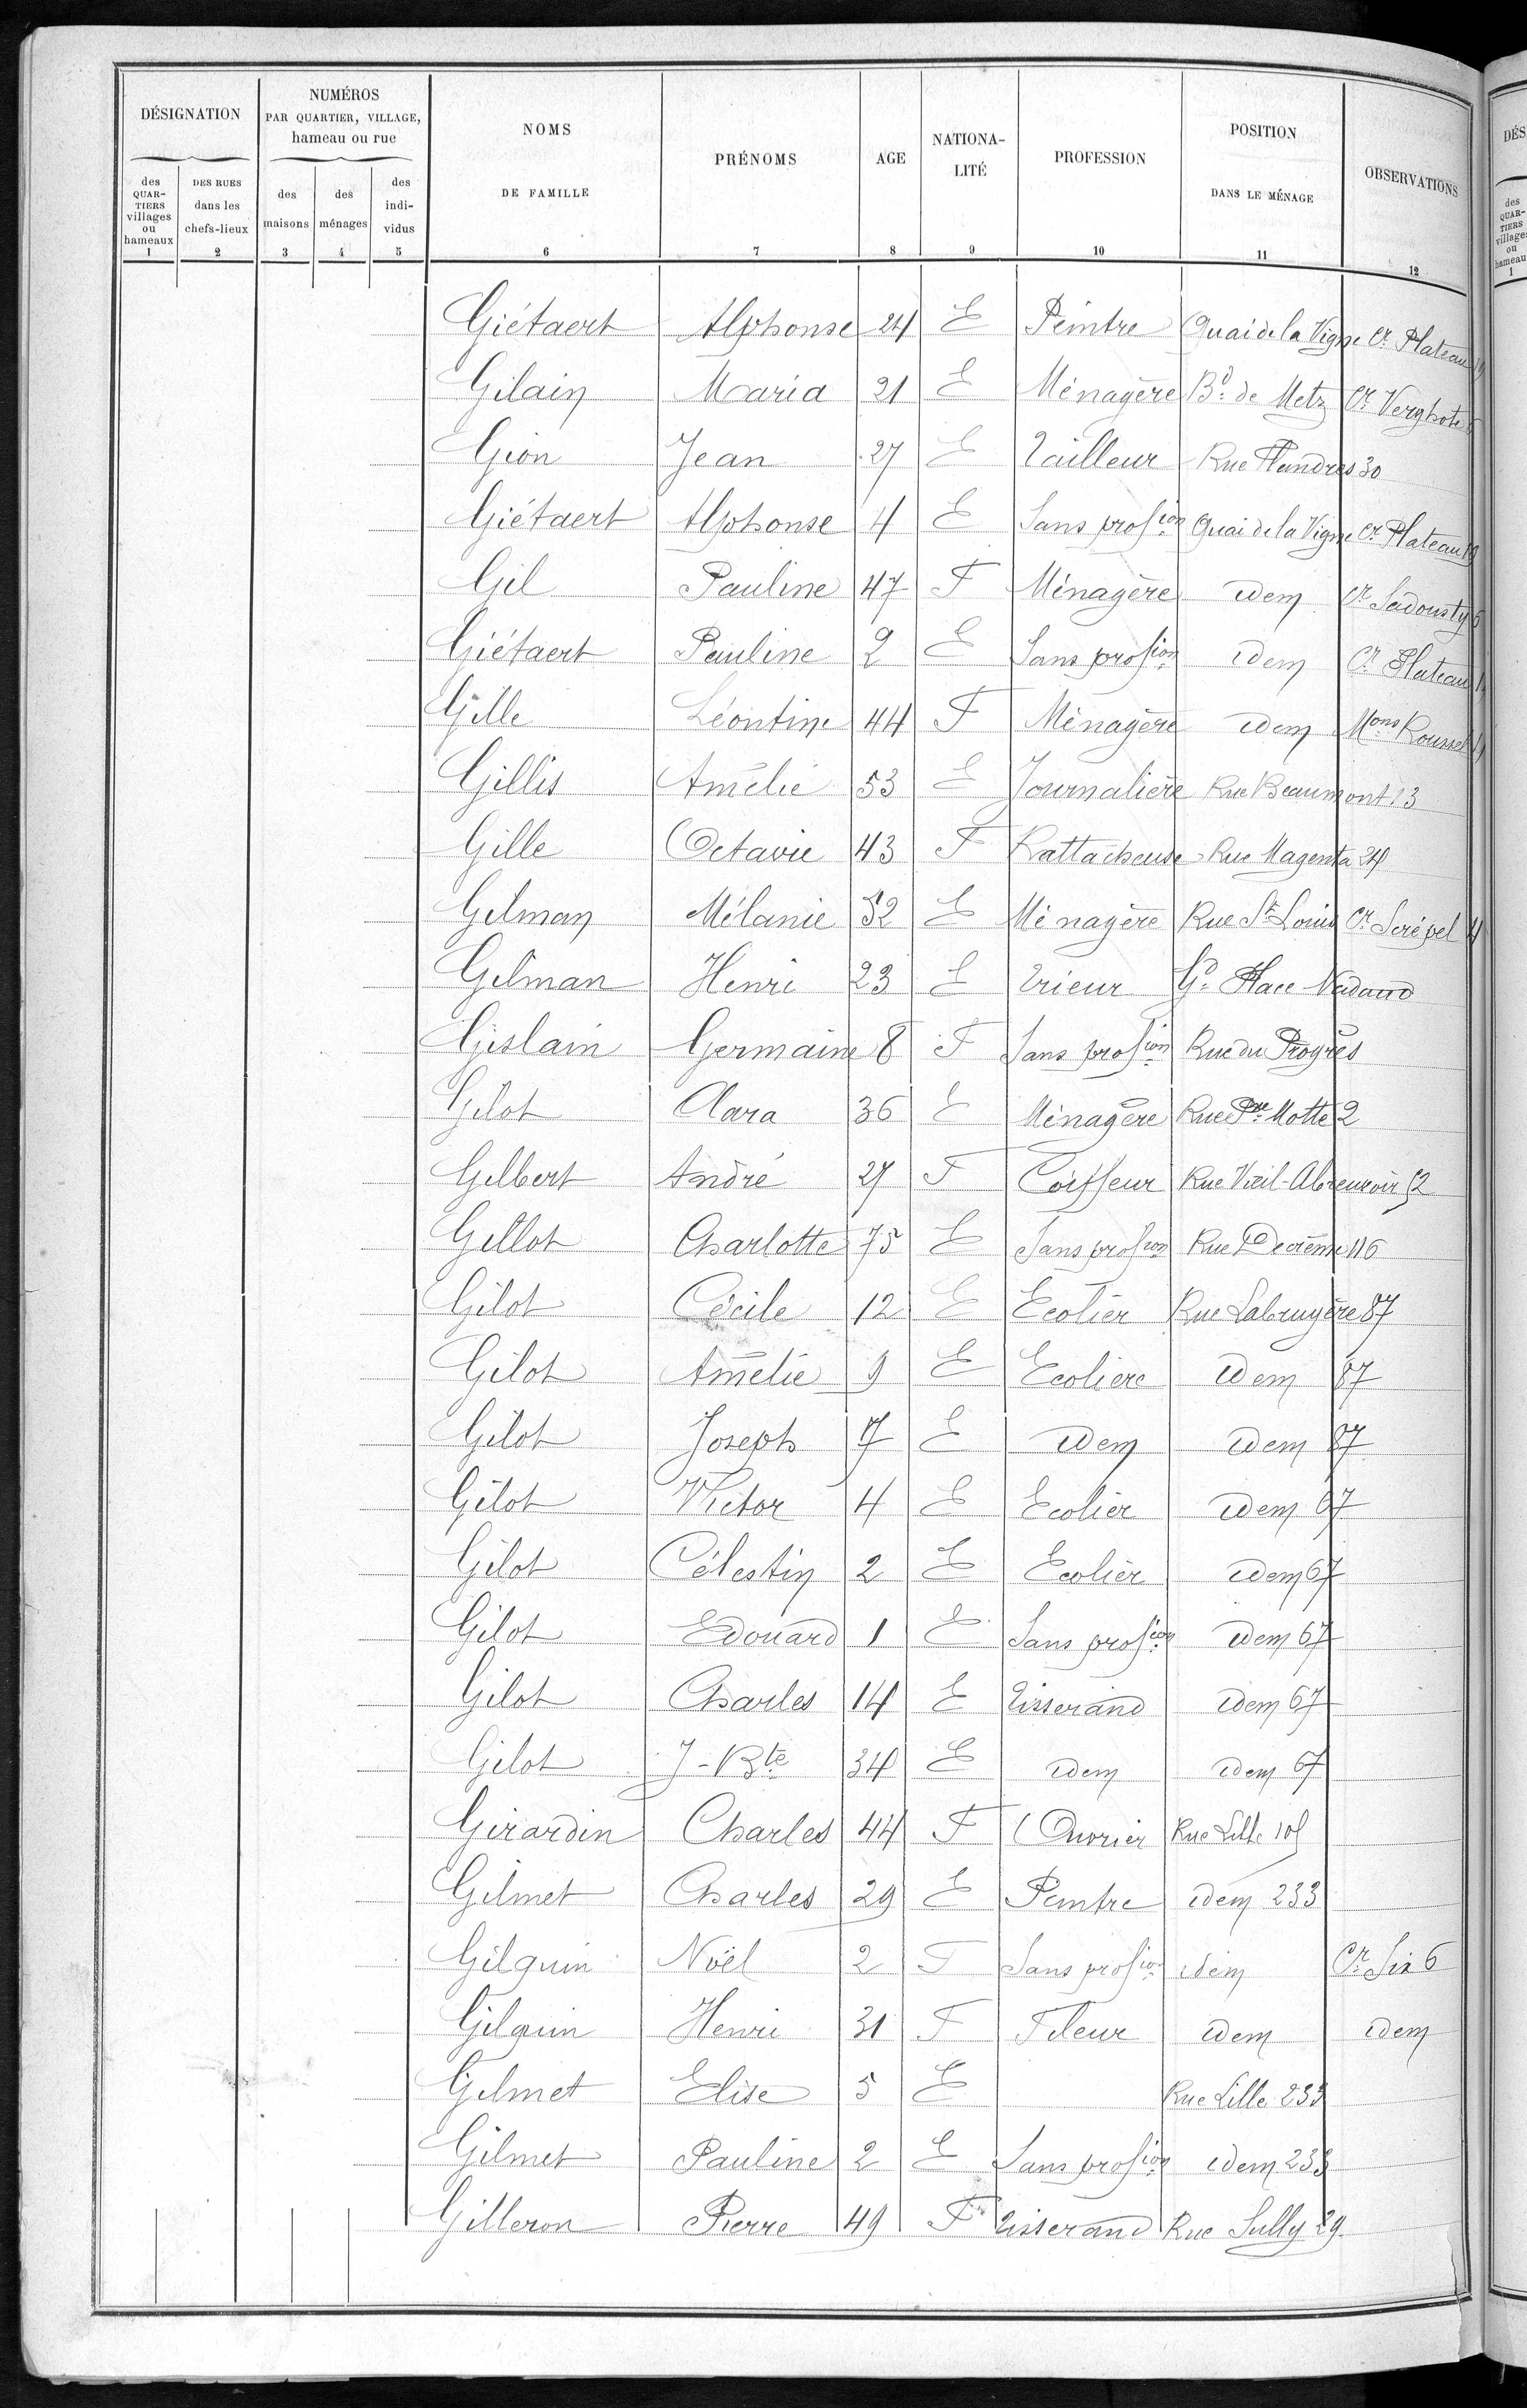 DÉSIGNATION
NUMÉROS PAR QUARTIER, VILLAGE, hameau ou rue
NOMS DE FAMILLE
PRÉNOMS
AGE
NATIONA-LITÉ
PROFESSION
POSITION DANS LE MÉNAGE
OBSERVATIONS
des QUAR-TIERS villages ou hameaux
DES RUES dans les chefs-lieux
des maisons
des ménages
des indi-vidus
1 2 3 4 5 6 7 8 9 10 11 12
Giétaert Alphonse 24 E Peintre Quai de la Vigne Cr Plateau 19
Gilain Maria 21 E Ménagère Bd de Metz Cr Verghote
Gion Jean 27 E Tailleur Rue Flandres 30
Giétaert Alphonse 4 E Sans profion Quai de la Vigne Cr Plateau 19
Gil Pauline 47 F Ménagère idem Cr
Giétaert Pauline 2 E Sans profion idem Cr Plateau
Gille Léontine 44 F Ménagère idem Mons Roussel
Gillis Amélie 53 E Journalière Rue Beaumont 13
Gille Octavie 43 F Rattacheuse Rue Magenta 24
Gilman Mélanie 52 E Ménagère Rue St Louis Cr Scrépel 4
Gilman Henri 23 E Trieur Gd Place Nadaud
Gislain Germaine 8 F Sans profion Rue du Progrès
Gilot Clara 36 E Ménagère Rue Pre Motte 2
Gilbert André 27 F Coiffeur Rue Vieil-Abreuvoir 52
Gillot Charlotte 75 E Sans profion Rue Decrême 116
Gilot Cécile 12 E Ecolier Rue Labruyère 87
Gilot Amélie 9 E Ecolière idem 87
Gilot Joseph 7 E idem idem 87
Gilot Victor 4 E Ecolier idem 67
Gilot Célestin 2 E Ecolier idem 67
Gilot Edouard 1 E Sans profion idem 67
Gilot Charles 14 E Tisserand idem 67
Gilot J-Bte 34 E idem idem 67
Girardin Charles 44 F Ouvrier Rue Lille
Gilmet Charles 29 E Peintre idem 233
Gilquin Noël 2 F Sans profion idem Cr Six 6
Gilquin Henri 31 F Fileur idem idem
Gilmet Elise 5 E Rue Lille 233
Gilmet Pauline 2 E Sans profion idem 233
Gilleron Pierre 49 F Tisserand Rue Sully 29
DÉS
des QUAR-TIERS villages ou hameau
1